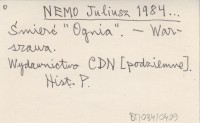 NEMO Juliusz 1984...
Śmierć "Ognia". – War-
szawa.
Wydawnictwo CDN [podziemne].
Hist. P.